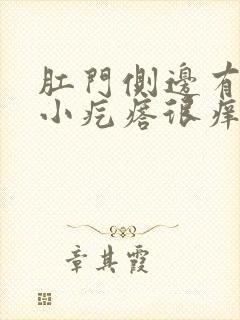 肛門側邊有
小疙瘩很癢
章其霞